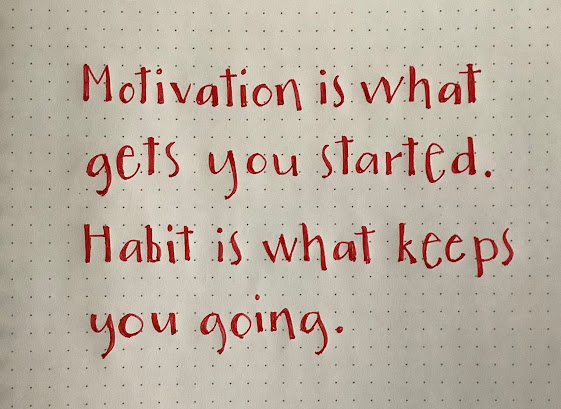 Motivation is what
gets you started.
Habit is what keeps
you going.